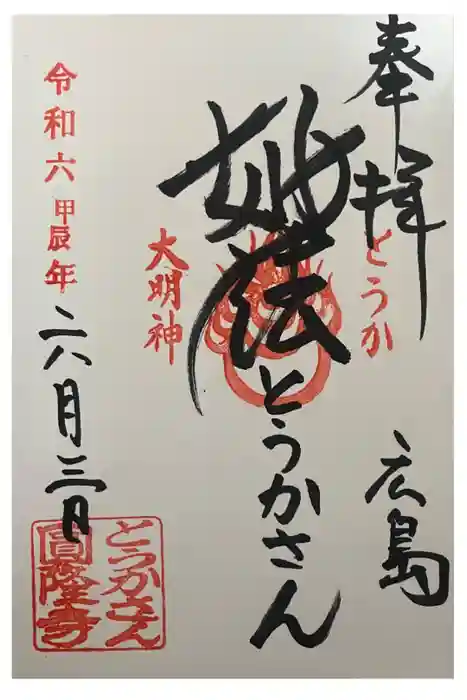 奉拝
とうか
広島
妙法
とうかさん
大明神
令和六甲辰年
六月三日
とうかさん
圓隆寺